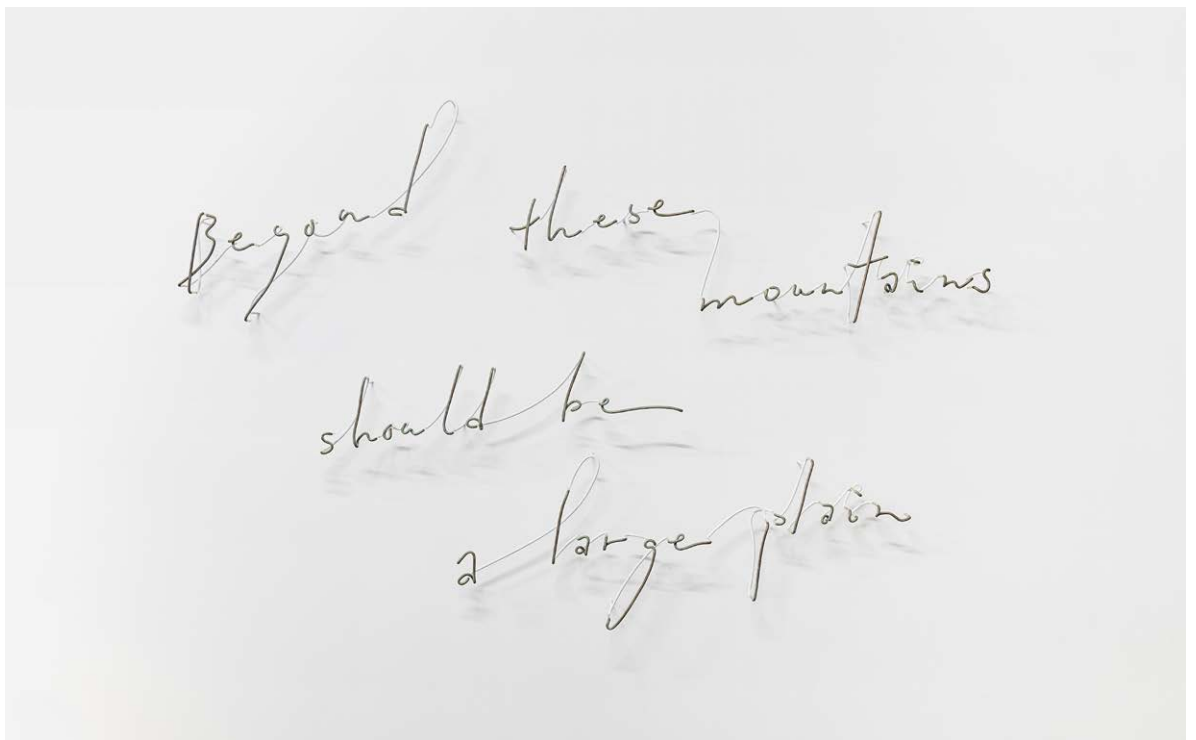 Beyond these
mountains
should be
a larger plain